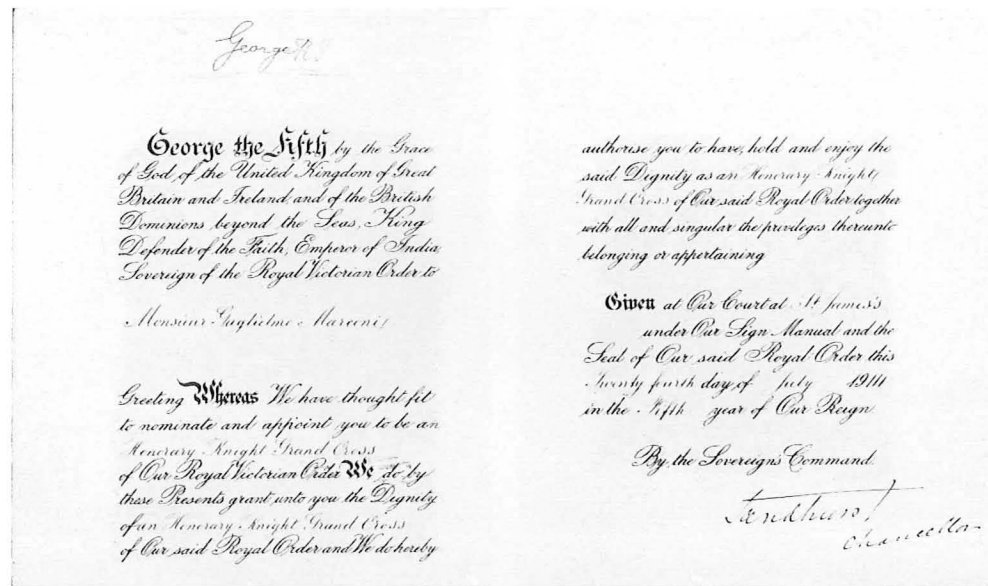 George R.I.
George the Fifth by the Grace
of God, of the United Kingdom of Great
Britain and Ireland and of the British
Dominions beyond the Seas, King
Defender of the Faith, Emperor of India,
Sovereign of the Royal Victorian Order to
Monsieur Guglielmo Marconi,
Greeting Whereas We have thought fit
to nominate and appoint you to be an
Honorary Knight Grand Cross
of Our Royal Victorian Order We do by
these Presents grant unto you the Dignity
of an Honorary Knight Grand Cross
of Our said Royal Order and We do hereby
authorise you to have, hold and enjoy the
said Dignity as an Honorary Knight
Grand Cross of Our said Royal Order together
with all and singular the privileges thereunto
belonging or appertaining
Given at Our Court at St James's
under Our Sign Manual and the
Seal of Our said Royal Order this
Twenty fourth day of July 1914
in the Fifth year of Our Reign
By the Sovereign's Command.
Sandhurst
Chancellor